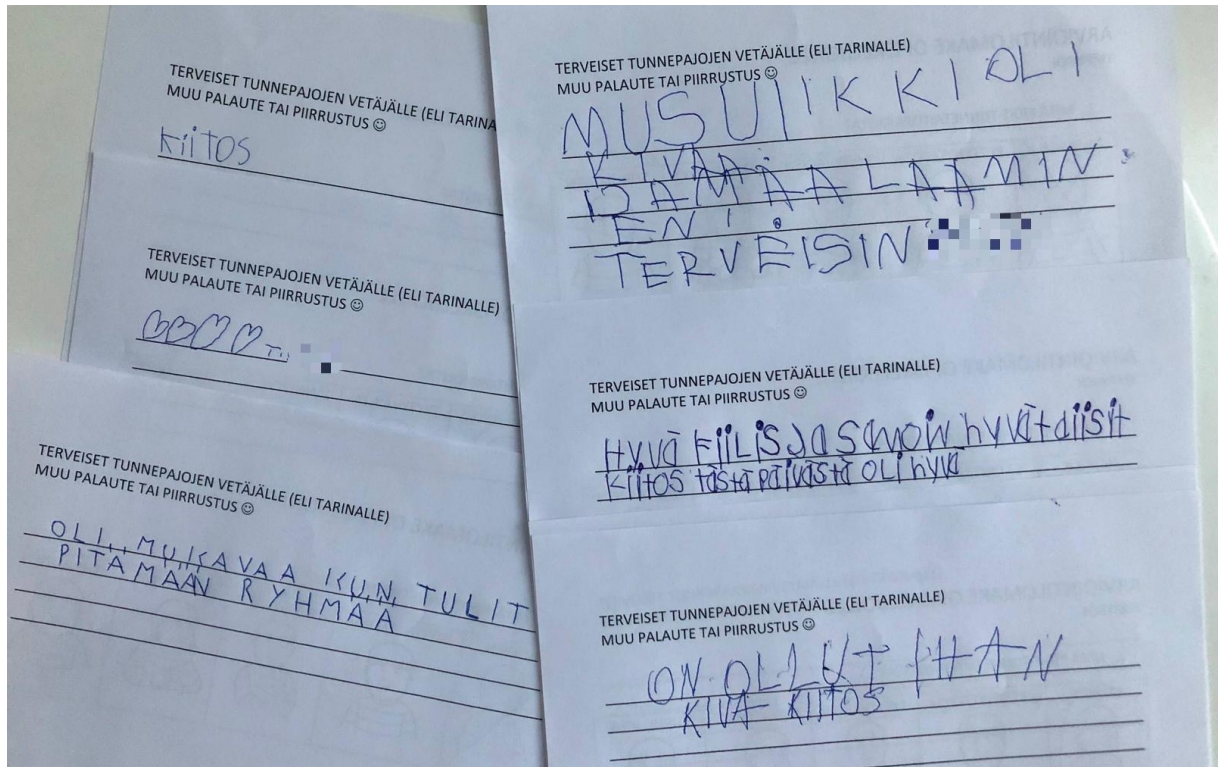 TERVEISET TUNNEPAJOJEN VETÄJÄLLE (ELI TARINA
MUU PALAUTE TAI PIIRRUSTUS ☺
kiitos
TERVEISET TUNNEPAJOJEN VETÄJÄLLE (ELI TARINALLE)
MUU PALAUTE TAI PIIRRUSTUS ☺
TERVEISET TUNNEPAJOJEN VETÄJÄLLE (ELI TARINALLE)
MUU PALAUTE TAI PIIRRUSTUS ☺
OLI MUKAVAA KUN TULIT
PITÄMÄÄN RYHMÄÄ
TERVEISET TUNNEPAJOJEN VETÄJÄLLE (ELI TARINALLE)
MUU PALAUTE TAI PIIRRUSTUS ☺
MUSUIIKKI OLI
KIVAA
LAAMIN
EN
TERVEISIN
TERVEISET TUNNEPAJOJEN VETÄJÄLLE (ELI TARINALLE)
MUU PALAUTE TAI PIIRRUSTUS ☺
HYVÄ FIILIS JA SAMOIN hyvät
kiitos tästä päivästä OLI hyvä
TERVEISET TUNNEPAJOJEN VETÄJÄLLE (ELI TARINALLE)
MUU PALAUTE TAI PIIRRUSTUS ☺
ON OLLUT IHAN
KIVA KIITOS